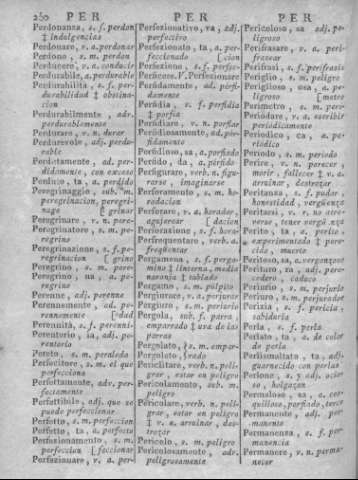 280 PER PER PER
Perdonanza, s. f. perdon
‡ indolgencias
Perdonare, v. a. perdonar
Perdono, s. m. perdon
Perducere, v. a. conducir
Perdurabile, a. perdurable
Perdurabilità, s. f. per-
durabilidad ‡ obstina-
cion
Perdurabilmente, adv.
perdurablemente
Perdurare, v. n. durar
Perdurevole, adj. perdu-
rable
Perdutamente, ad. per-
didamente, con exceso
Perduto, ta, a. perdido
Peregrinaggio, sub. m.
peregrinacion, peregri-
nage [grinar
Peregrinare, v. n. pere-
Peregrinatore, s. m. pe-
regrino
Peregrinazione, s. f. pe-
regrinacion [grino
Peregrino, s. m. pere-
Peregrino, na, a. pe-
regrino
Perenne, adj. perenne
Perennemente, ad. pe-
rennemente [dad
Perennità, s. f. perenni-
Perentorio, ia, adj. pe-
rentorio
Pereto, s. m. peraleda
Perfecitore, s. m. el que
perfecciona
Perfettamente, adv. per-
fectamente
Perfettibile, adj. que se
puede perfeccionar
Perfetto, s. m. perfeccion
Perfetto, ta, a. perfecto
Perfezionamento, s. m.
perfeccion [feccionar
Perfezionare, v. a. per-
Perfezionativo, va, adj.
perfectivo
Perfezionato, ta, a. per-
feccionado [cion
Perfezione, s. f. perfec-
Perficere. V. Perfezionare
Perfidamente, ad. pérfi-
damente
Perfidia, s. f. perfidia
‡ porfia
Perfidiare, v. n. porfiar
Perfidiosamente, ad. pér-
fidamente
Perfidioso, sa, a. porfiado
Perfido, da, a. pérfido
Perfigurare, verb. n. figu-
rarse, imaginarse
Perforamento, s. m. ho-
radacion
Perforare, v. a. horadar,
agujerear [dacion
Perforazione, s. f. hora-
Perfrequentare, verb. a.
freqüentar
Pergamena, s. f. perga-
mino ‡ linterna, media
naranja ‡ tablado
Pergamo, s. m. púlpito
Pergiurare, v. a. perjurar
Pergiuro, s. m. perjurio
Pergola, sub. f. parra,
emparrado ‡ uva de las
parras
Pergolato, s. m. empar-
Pergoleto, rado
Periclitare, verb. n. peli-
grar, estar en peligro
Pericolamento, sub. m.
peligro
Pericolare, verb. n. peli-
grar, estar en peligro
‡ v. a. arruinar, des-
trozar
Pericolo, s. m. peligro
Pericolosamente, adv.
peligrosamente
Pericoloso, sa adj. pe-
ligroso
Perifrasare, v. a. peri-
frasear
Perifrasi, s. f. perífrasis
Periglio, s. m. peligro
Periglioso, osa, a. pe-
ligroso [metro
Perimetro, s. m. perí-
Periodare, v. a. escribir
periodicamente
Periodico, ca, a. pe-
riódico
Periodo, s. m. periodo
Perire, v. n. perecer,
morir, fallecer ‡ v. a.
arruinar, destrozar
Peritanza, s. f. pudor,
honestidad, vergüenza
Peritarsi, v. r. no atre-
verse, tener vergüenza
Perito, ta, a. perito,
experimentado ‡ pere-
cido, muerto
Peritoso, sa, a. vergonzoso
Perituro, ra, adj. pere-
cedero, caduco
Periurio, s. m. perjurio
Periuro, s. m. perjurador
Perizia, s. f. pericia,
sabiduria
Perla, s. f. perla
Perlato, ta, a. de color
de perla
Perlismaltato, ta, adj.
guarnecido con perlas
Perlone, s. y adj. ocio-
so, holgazan
Permaloso, sa, a. cor-
quilloso, porfiado, terco
Permanente, adj. per-
manente
Permanenza, s. f. per-
manencia
Permanere, v. n. perma-
necer